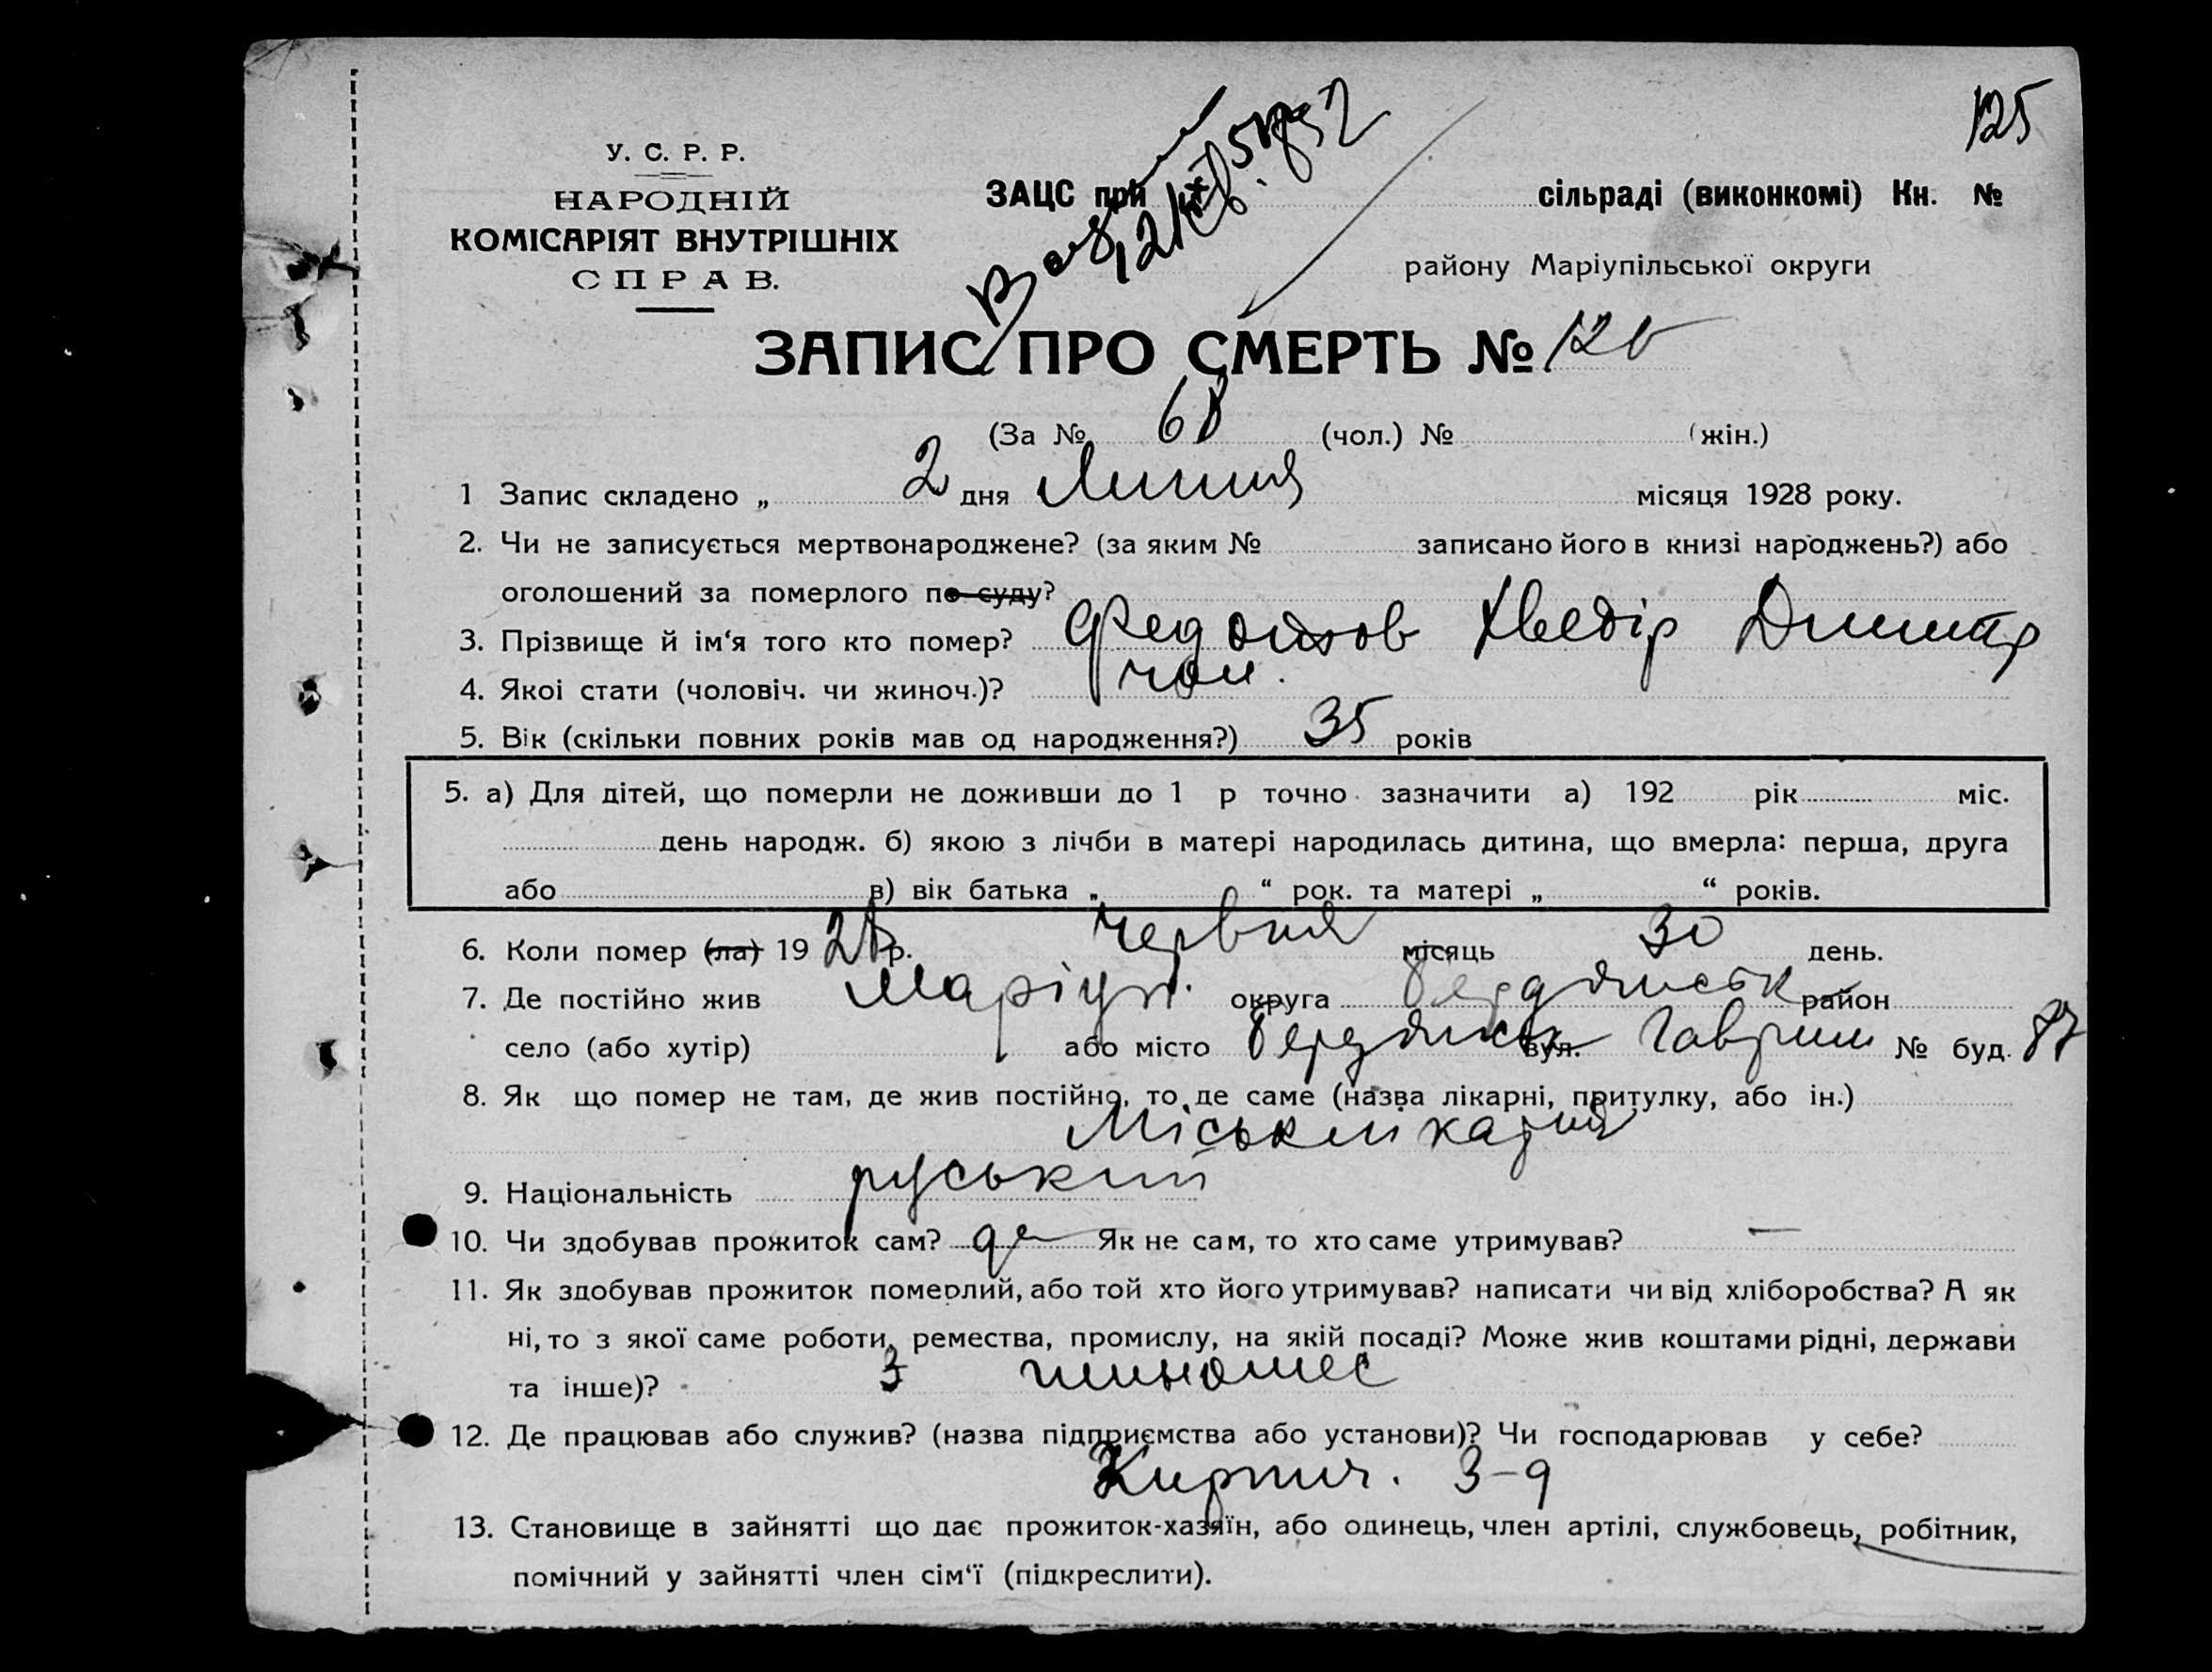 125
У. С. Р. Р.
НАРОДНІЙ
КОМІСАРІЯТ ВНУТРІШНІХ
СПРАВ.
ЗАЦС при сільраді (виконкомі) Кн. №
району Маріупільської округи
ЗАПИС ПРО СМЕРТЬ № 126
(За № 68 (чол.) № (жін.)
1 Запис складено „ 2 дня Липня місяця 1928 року.
2. Чи не записується мертвонароджене? (за яким № записано його в книзі народжень?) або
оголошений за померлого по суду?
3. Прізвище й ім'я того кто помер? Федотов Хведір Дмитр
4. Якоі стати (чоловіч. чи жиноч.)? чол.
5. Вік (скільки повних років мав од народження?) 35 років
5. а) Для дітей, що померли не доживши до 1 р точно зазначити а) 192 рік міс.
день народж. б) якою з лічби в матері народилась дитина, що вмерла: перша, друга
або в) вік батька „ “ рок. та матері „ “ років.
6. Коли помер (ла) 1928 р. Червня місяць 30 день.
7. Де постійно жив Маріуп. округа Бердянськ район
село (або хутір) або місто Бердянськ вул. Гаврил № буд. 87
8. Як що помер не там, де жив постійно, то де саме (назва лікарні, притулку, або ін.)
Міськлікарня
9. Національність руський
10. Чи здобував прожиток сам? да Як не сам, то хто саме утримував? —
11. Як здобував прожиток померлий, або той хто його утримував? написати чи від хліборобства? А як
ні, то з якої саме роботи, ремества, промислу, на якій посаді? Може жив коштами рідні, держави
та інше)? з
12. Де працював або служив? (назва підприємства або установи)? Чи господарював у себе?
Кирпич. з-д
13. Становище в зайнятті що дає прожиток-хазяїн, або одинець, член артілі, службовець, робітник,
помічний у зайнятті член сім'ї (підкреслити).